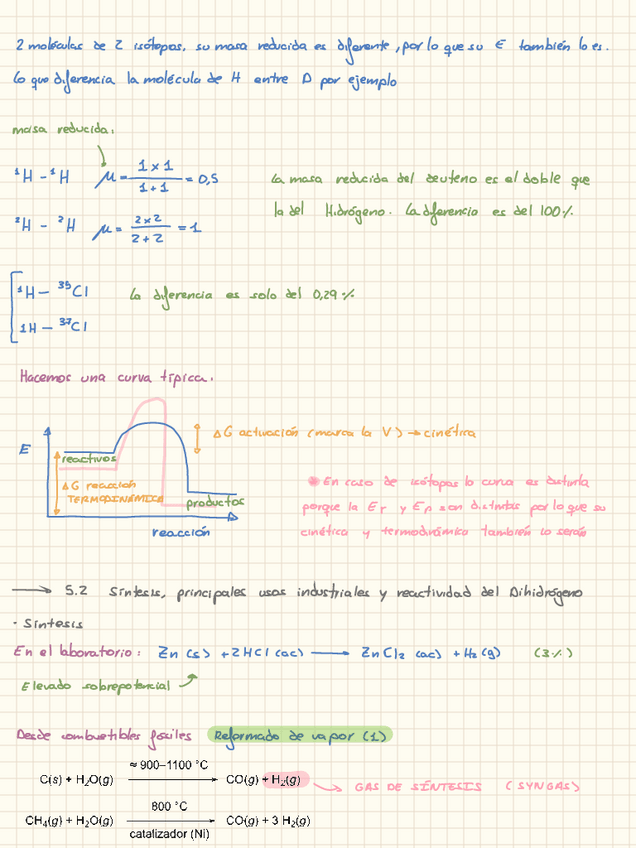 2 moléculas de 2 isótopos, su masa reducida es diferente, por lo que su E también lo es.
Lo que diferencia la molécula de H entre D por ejemplo
masa reducida.
¹H - ¹H μ = 1 x 1 / 1 + 1 = 0,5
La masa reducida del deuteno es el doble que
la del Hidrógeno. La diferencia es del 100%
²H - ²H μ = 2 x 2 / 2 + 2 = 1
¹H - ³⁵Cl La diferencia es solo del 0,29%
1H - ³⁷Cl
Hacemos una curva típica.
E
reactivos
ΔG activación (marca la V) → cinética
ΔG reacción
TERMODINÁMICA
productos
reacción
En caso de isótopos la curva es distinta
porque la Er y Ep son distintas por lo que su
cinética y termodinámica también lo serán
→ 5.2 Síntesis, principales usos industriales y reactividad del Dihidrógeno
· Síntesis
En el laboratorio: Zn (s) + 2HCl (ac) → ZnCl₂ (ac) + H₂ (g) (3%)
Elevado sobrepotencial
Desde combustibles fósiles Reformado de vapor (1)
≈ 900–1100 °C
C(s) + H₂O(g) → CO(g) + H₂(g) → GAS DE SÍNTESIS (SYNGAS)
800 °C
CH₄(g) + H₂O(g) → CO(g) + 3 H₂(g)
catalizador (Ni)